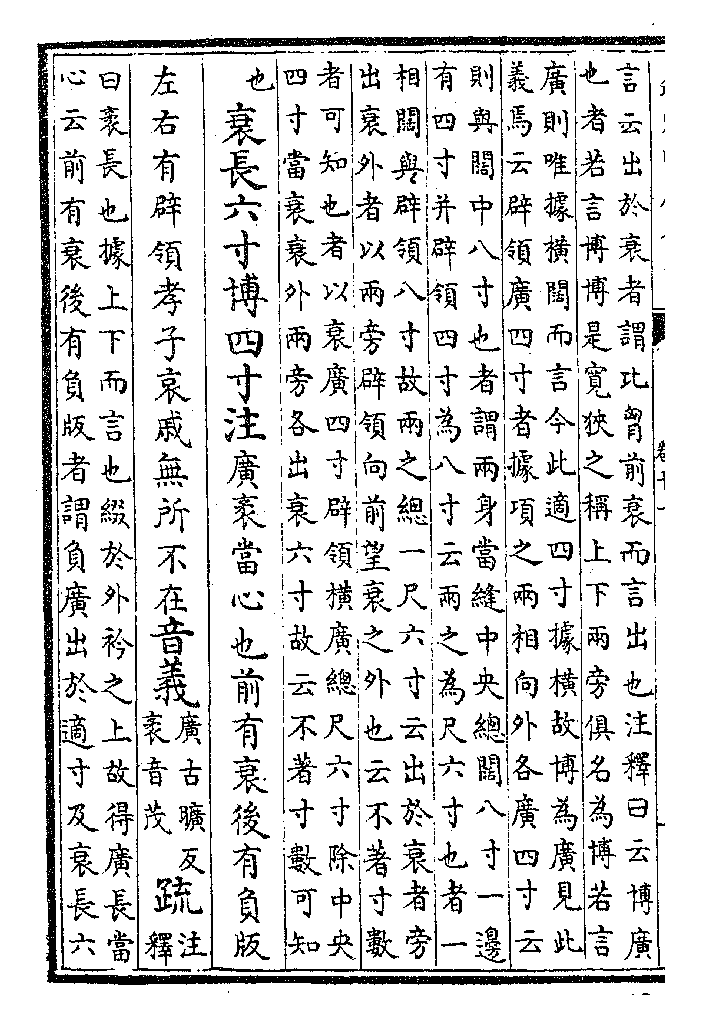 言云出於衰者謂比胷前衰而言出也注釋曰云博廣
也者若言博博是寛狹之稱上下兩旁俱名為博若言
廣則唯據横闊而言今此適四寸據横故博為廣見此
義焉云辟領廣四寸者據項之兩相向外各廣四寸云
則與闊中八寸也者謂兩身當縫中央總闊八寸一邊
有四寸并辟領四寸為八寸云兩之為尺六寸也者一
相闊與辟領八寸故兩之總一尺六寸云出於衰者旁
出衰外者以兩旁辟領向前望衰之外也云不著寸數
者可知也者以衰廣四寸辟領横廣總尺六寸除中央
四寸當衰衰外兩旁各出衰六寸故云不著寸數可知
也衰長六寸博四寸注廣袤當心也前有衰後有負版
左右有辟領孝子哀戚無所不在音義廣古曠反袤音茂疏注釋
曰袤長也據上下而言也綴於外衿之上故得廣長當
心云前有衰後有負版者謂負廣出於適寸及衰長六